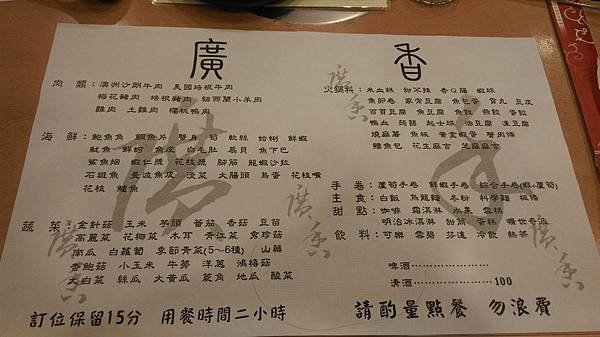 廣 香
肉 類：澳洲沙朗牛肉 美國培根牛肉
梅花豬肉 培根豬肉 紐西蘭小羊肉
雞肉 土雞肉 櫻桃鴨肉
海 鮮：鮑魚角 鯛魚片 蟹身 筍 軟絲 蛤蜊 鮮蝦
魷魚 鮮蚵 魚皮 白毛肚 扇貝 魚下巴
鯊魚烟 蝦仁漿 花枝漿 腳筋 龍蝦沙拉
石斑魚 曼波魚皮 淡菜 大腸頭 鳥蛋 花枝嘴
花枝 鱸魚
蔬 菜：金針菇 玉米 芋頭 蕃茄 香菇 豆苗
高麗菜 花椰菜 木耳 青江菜 秀珍菇
南瓜 白蘿蔔 季節青菜(5~6種) 山藥
杏鮑菇 小玉米 牛蒡 洋蔥 鴻禧菇
大白菜 絲瓜 大黃瓜 菱角 地瓜 酸菜
訂位保留15分 用餐時間二小時
火鍋料：米血糕 甜不辣 香Q腸 蝦球
魚卵卷 家常豆腐 魚包蛋 貢丸 豆皮
百頁豆腐 魚豆腐 魚餃 燕餃 蛋餃
鴨血 蒟蒻 起士球 油豆腐 凍豆腐
燒麻薯 魚板 黃食蝦蛋 蟹肉條
鱈魚包 花生麻吉 芝麻麻吉
手 卷：蘆筍手卷 鮮蝦手卷 綜合手卷(蝦蘆筍)
主 食：白飯 烏龍麵 冬粉 科學麵 板條
甜 點：咖啡 霜淇淋 水果 雪糕
明治冰淇淋 甜筒 蛋糕 曠世奇派
飲 料：可樂 雪碧 芬達 冷飲 熱茶
啤酒⋯⋯⋯⋯⋯⋯⋯
清酒⋯⋯⋯⋯⋯⋯⋯100
請酌量點餐 勿浪費
廣香
廣香
廣香
廣香